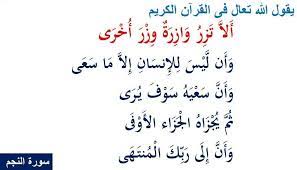 يقول الله تعال فى القرآن الكريم
أَلاَّ تَزِرُ وَازِرَةٌ وِزْرَ أُخْرَى
وَأَن لَّيْسَ لِلإِنسَانِ إِلاَّ مَا سَعَى
وَأَنَّ سَعْيَهُ سَوْفَ يُرَى
ثُمَّ يُجْزَاهُ الْجَزَاءَ الأَوْفَى
وَأَنَّ إِلَى رَبِّكَ الْمُنتَهَى
سورة النجم